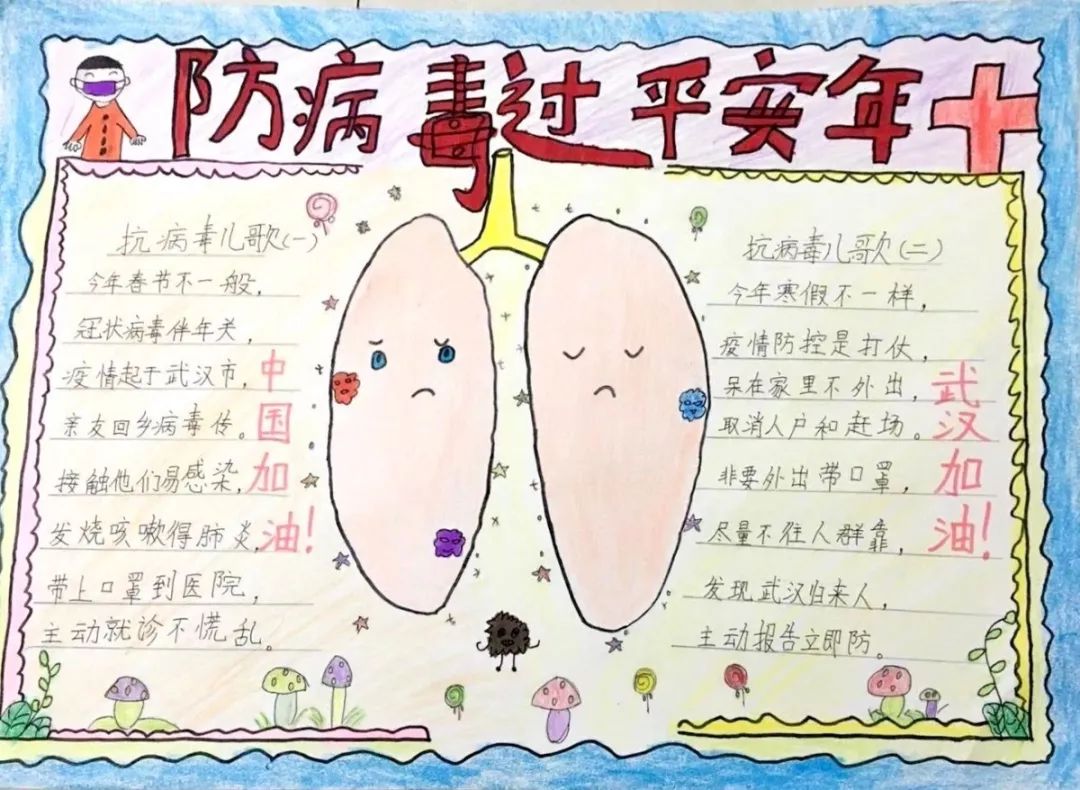 防病毒过平安年
抗病毒儿歌(一)
今年春节不一般，
冠状病毒伴年关，
疫情起于武汉市，
亲友回乡病毒传。
接触他们易感染，
发烧咳嗽得肺炎，
带上口罩到医院，
主动就诊不慌乱。
中国加油！
抗病毒儿歌(二)
今年寒假不一样，
疫情防控是打仗，
呆在家里不外出，
取消人户和赶场。
非要外出带口罩，
尽量不往人群靠，
发现武汉归来人，
主动报告立即防。
武汉加油！